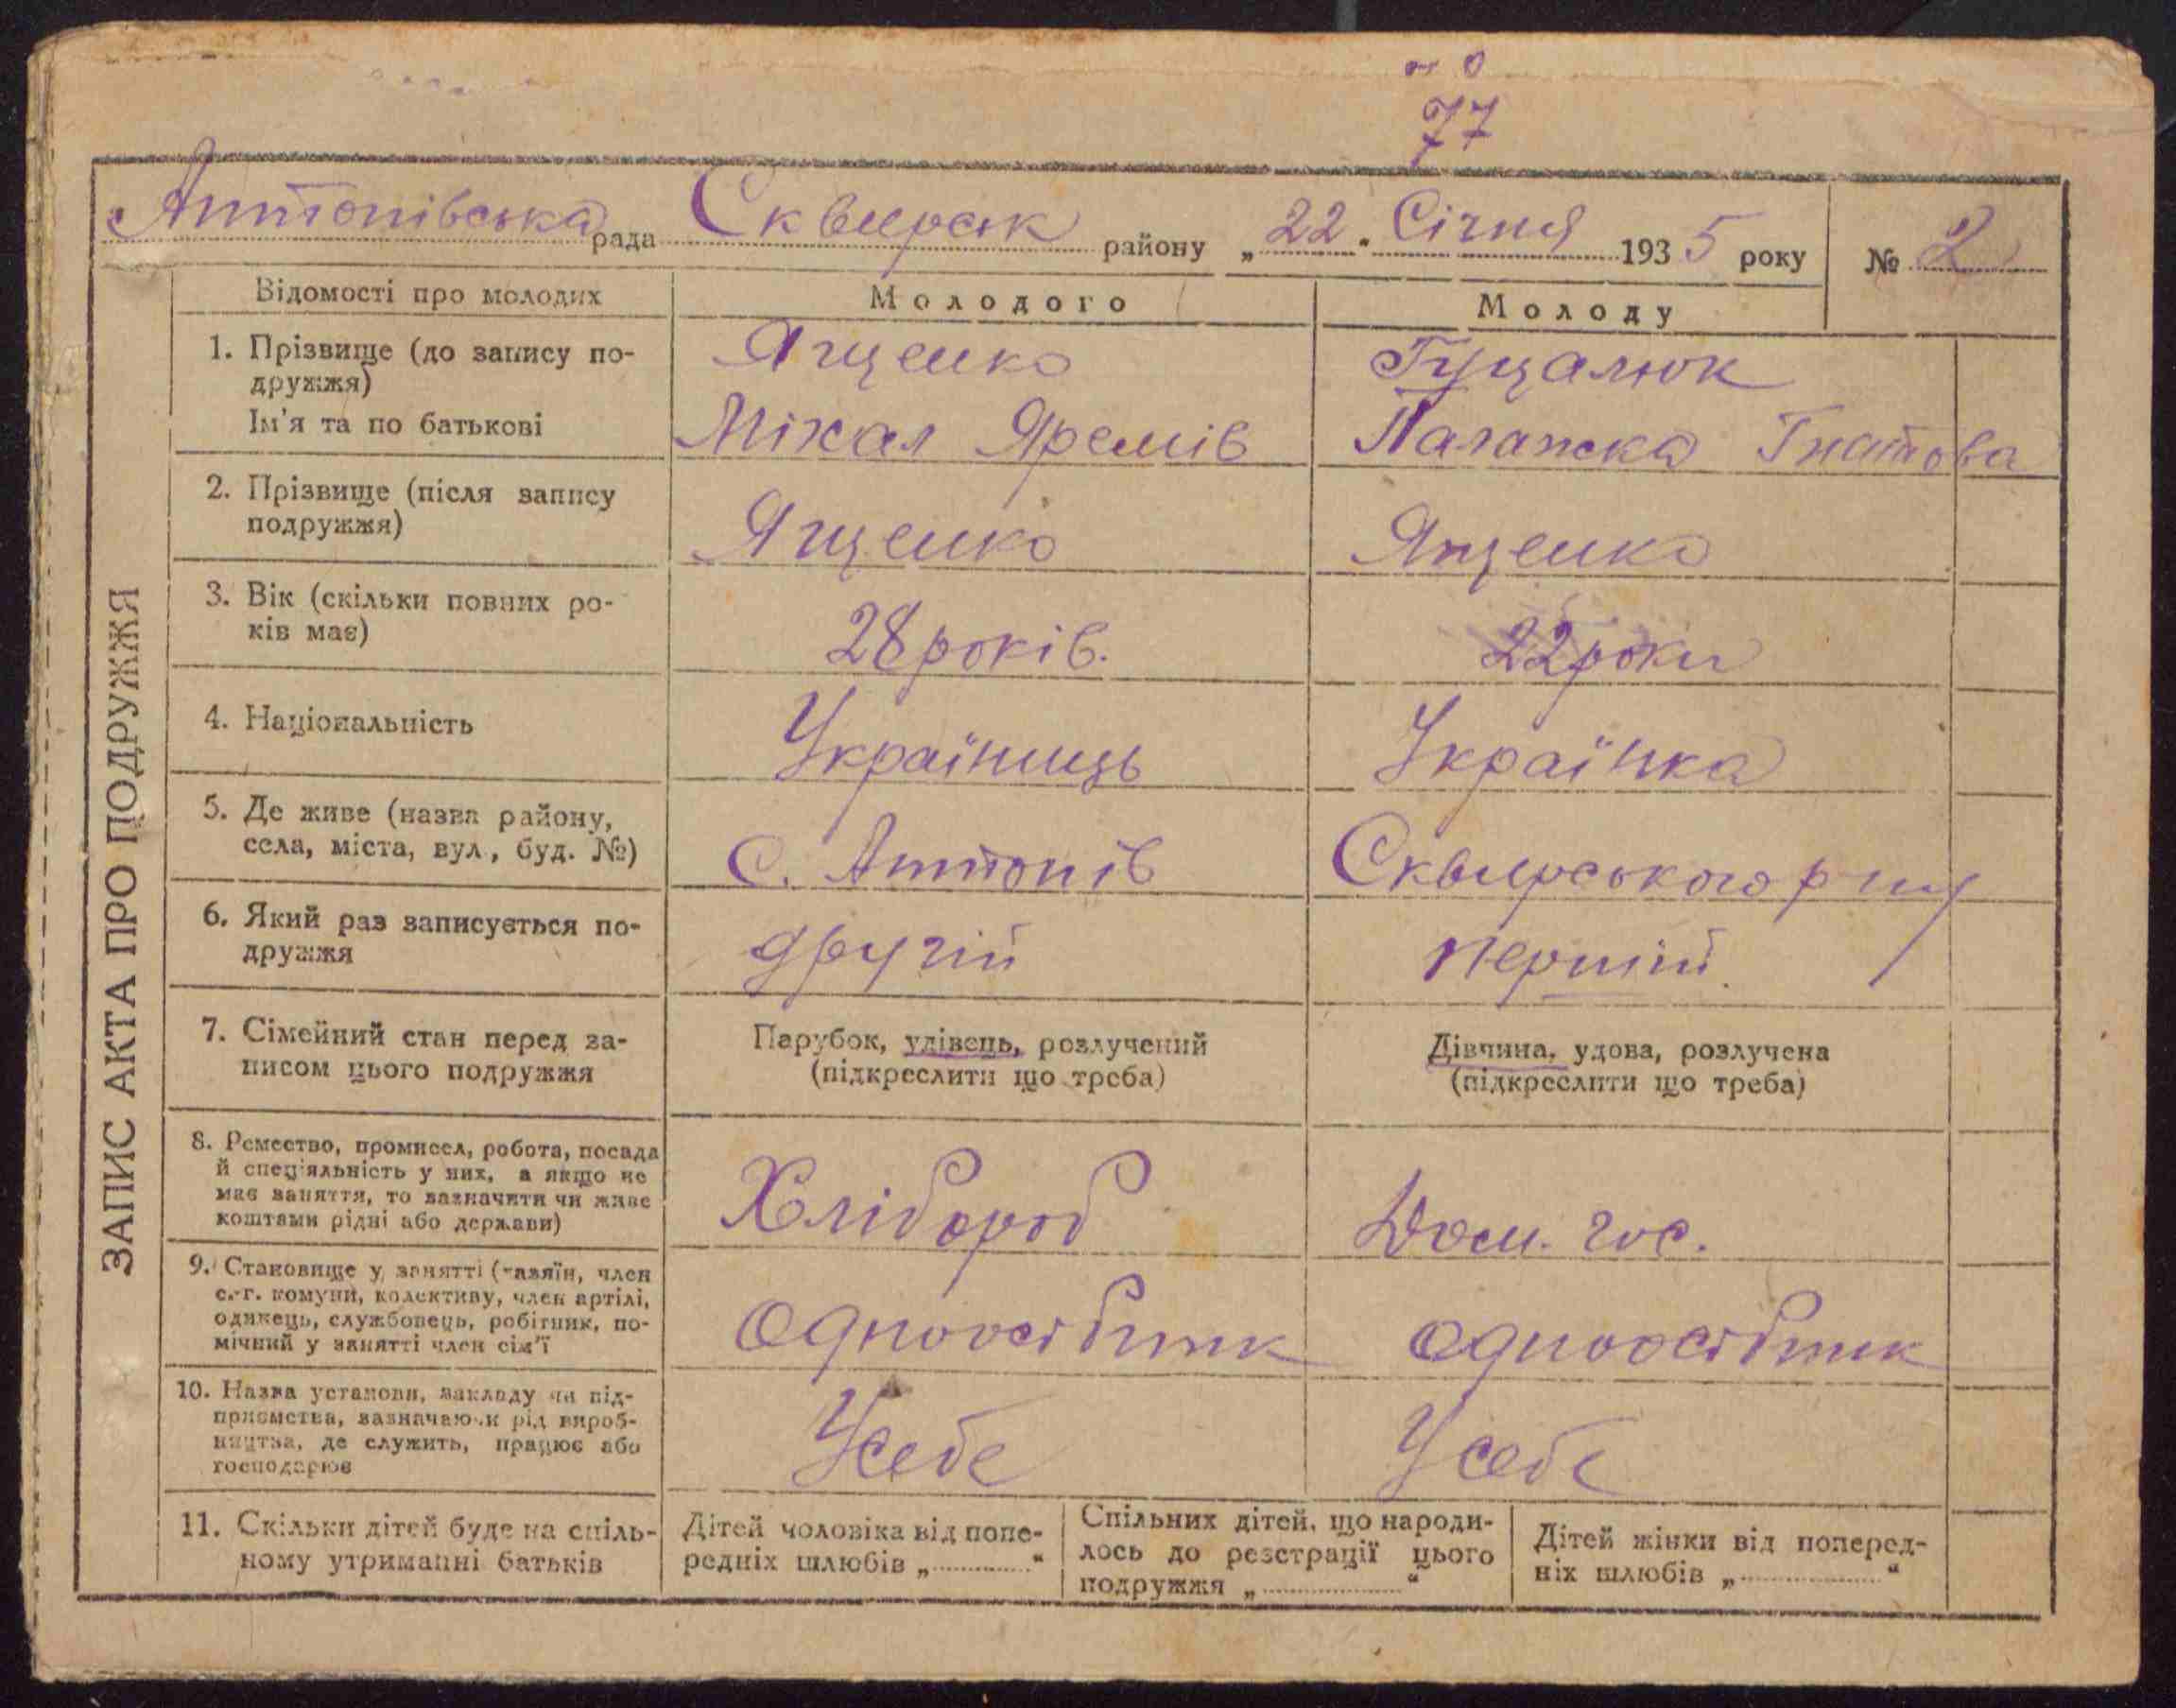 77
Антонівська рада Сквирськ району „22" Січня 1935 року № 2
ЗАПИС АКТА ПРО ПОДРУЖЖЯ
Відомості про молодих Молодого Молоду
1. Прізвище (до запису по-
дружжя) Ященко Гуцалюк
Ім'я та по батькові Міхал Яремів Палажка Гнатова
2. Прізвище (після запису
подружжя) Ященко Ященко
3. Вік (скільки повних ро-
ків має) 28 років. 22 роки
4. Національність Українець Українка
5. Де живе (назва району,
села, міста, вул., буд. №) С. Антонів Сквирського р-ну
6. Який раз записується по-
дружжя другій першій
7. Сімейний стан перед за-
писом цього подружжя
Парубок, удівець, розлучений
(підкреслити що треба)
Дівчина, удова, розлучена
(підкреслити що треба)
8. Ремество, промисел, робота, посада
й спеціяльність у них, а якщо не
має заняття, то зазначити чи живе
коштами рідні або держави) Хлібороб Дом. гос.
9. Становище у занятті (хазяїн, член
с.-г. комуни, колективу, член артілі,
одинець, службовець, робітник, по-
мічний у занятті член сім'ї Одноосібник Одноосібник
10. Назва установи, закладу чи під-
приємства, зазначаючи рід вироб-
ництва, де служить, працює або
господарює У себе У себе
11. Скільки дітей буде на спіль-
ному утриманні батьків
Дітей чоловіка від попе-
редніх шлюбів „ "
Спільних дітей, що народи-
лось до реєстрації цього
подружжя „ "
Дітей жінки від поперед-
ніх шлюбів „ "